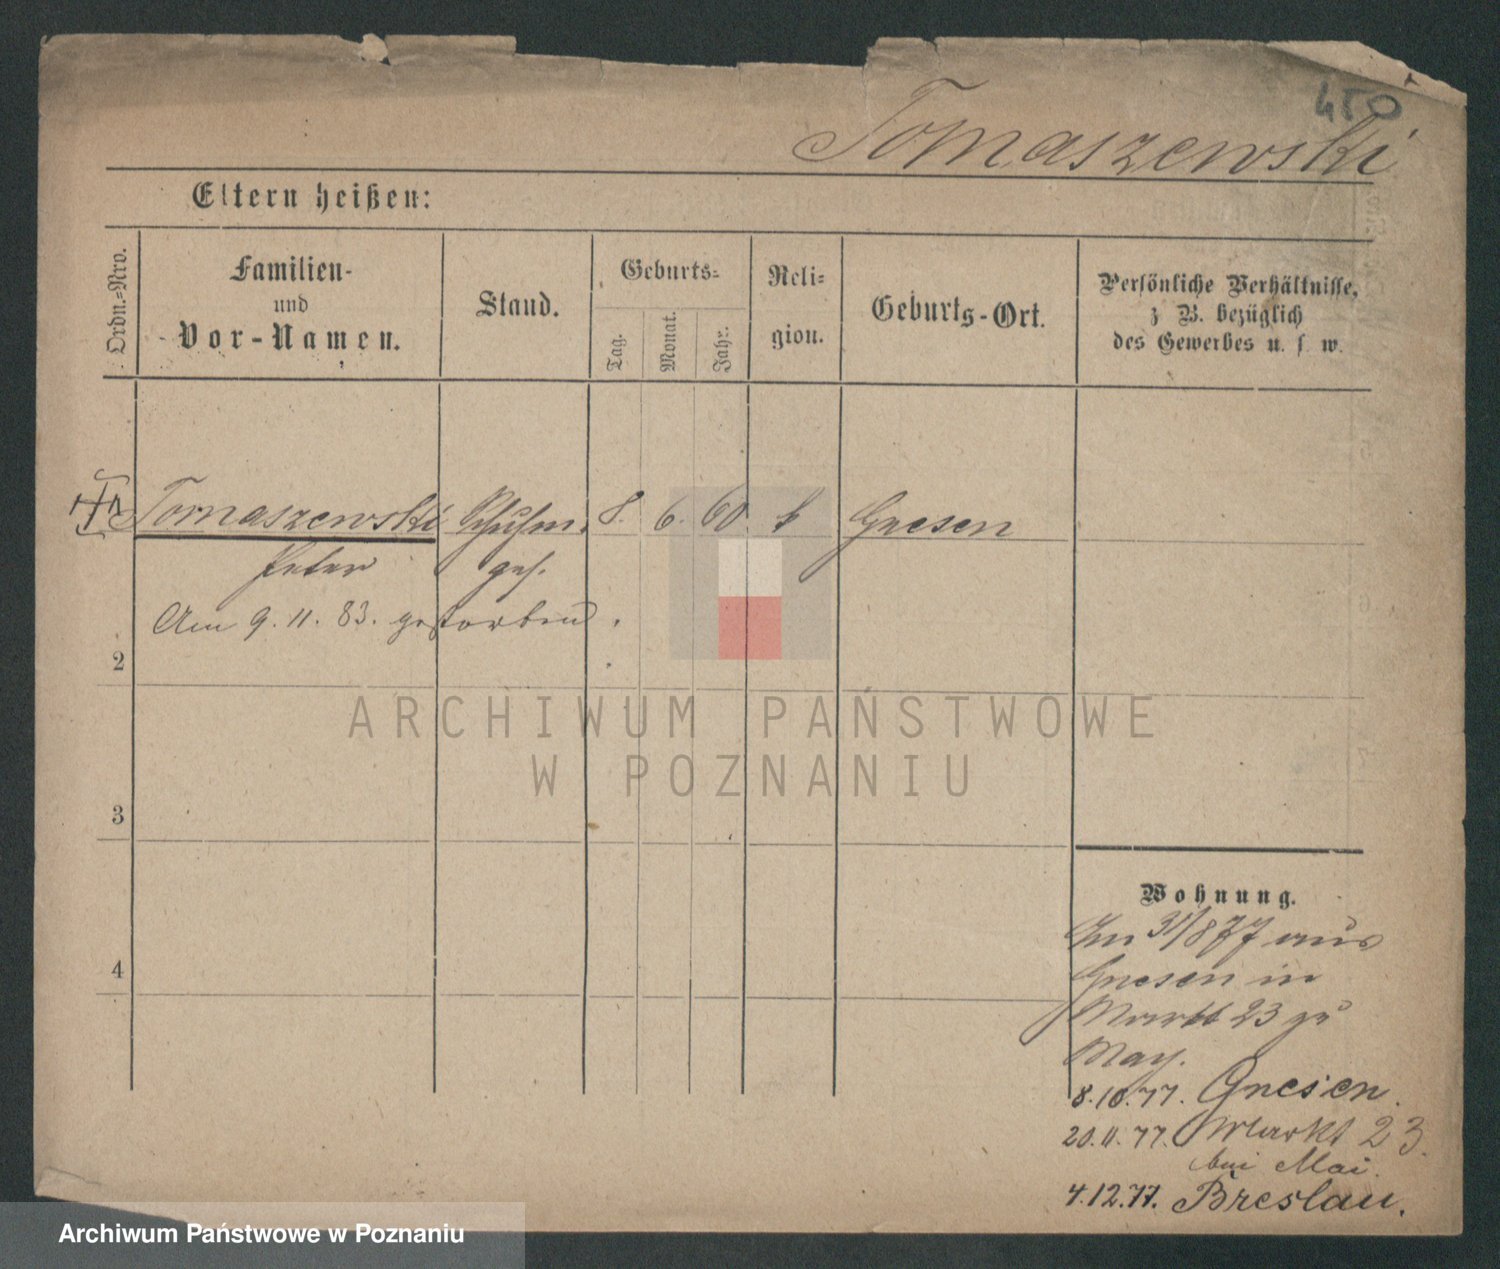 450
Tomaszewski
Eltern heißen:
Ordn.-Nro.
Familien-
und
Vor-Namen.
Stand.
Geburts-
Tag.
Monat.
Jahr.
Reli-
gion.
Geburts-Ort.
Persönliche Verhältnisse,
z. B. bezüglich
des Gewerbes u. s. w.
Tomaszewski Schuhm. 8. 6. 60. k Gnesen
Peter ges.
Am 9. 11. 83. gestorben.
2
3
4
ARCHIWUM PAŃSTWOWE
W POZNANIU
Wohnung.
31/8 77 aus
Gnesen in
Markt 23 zu
May.
8.10.77. Gnesen.
20.11.77. Markt 23.
bei Mai.
4.12.77. Breslau.
Archiwum Państwowe w Poznaniu